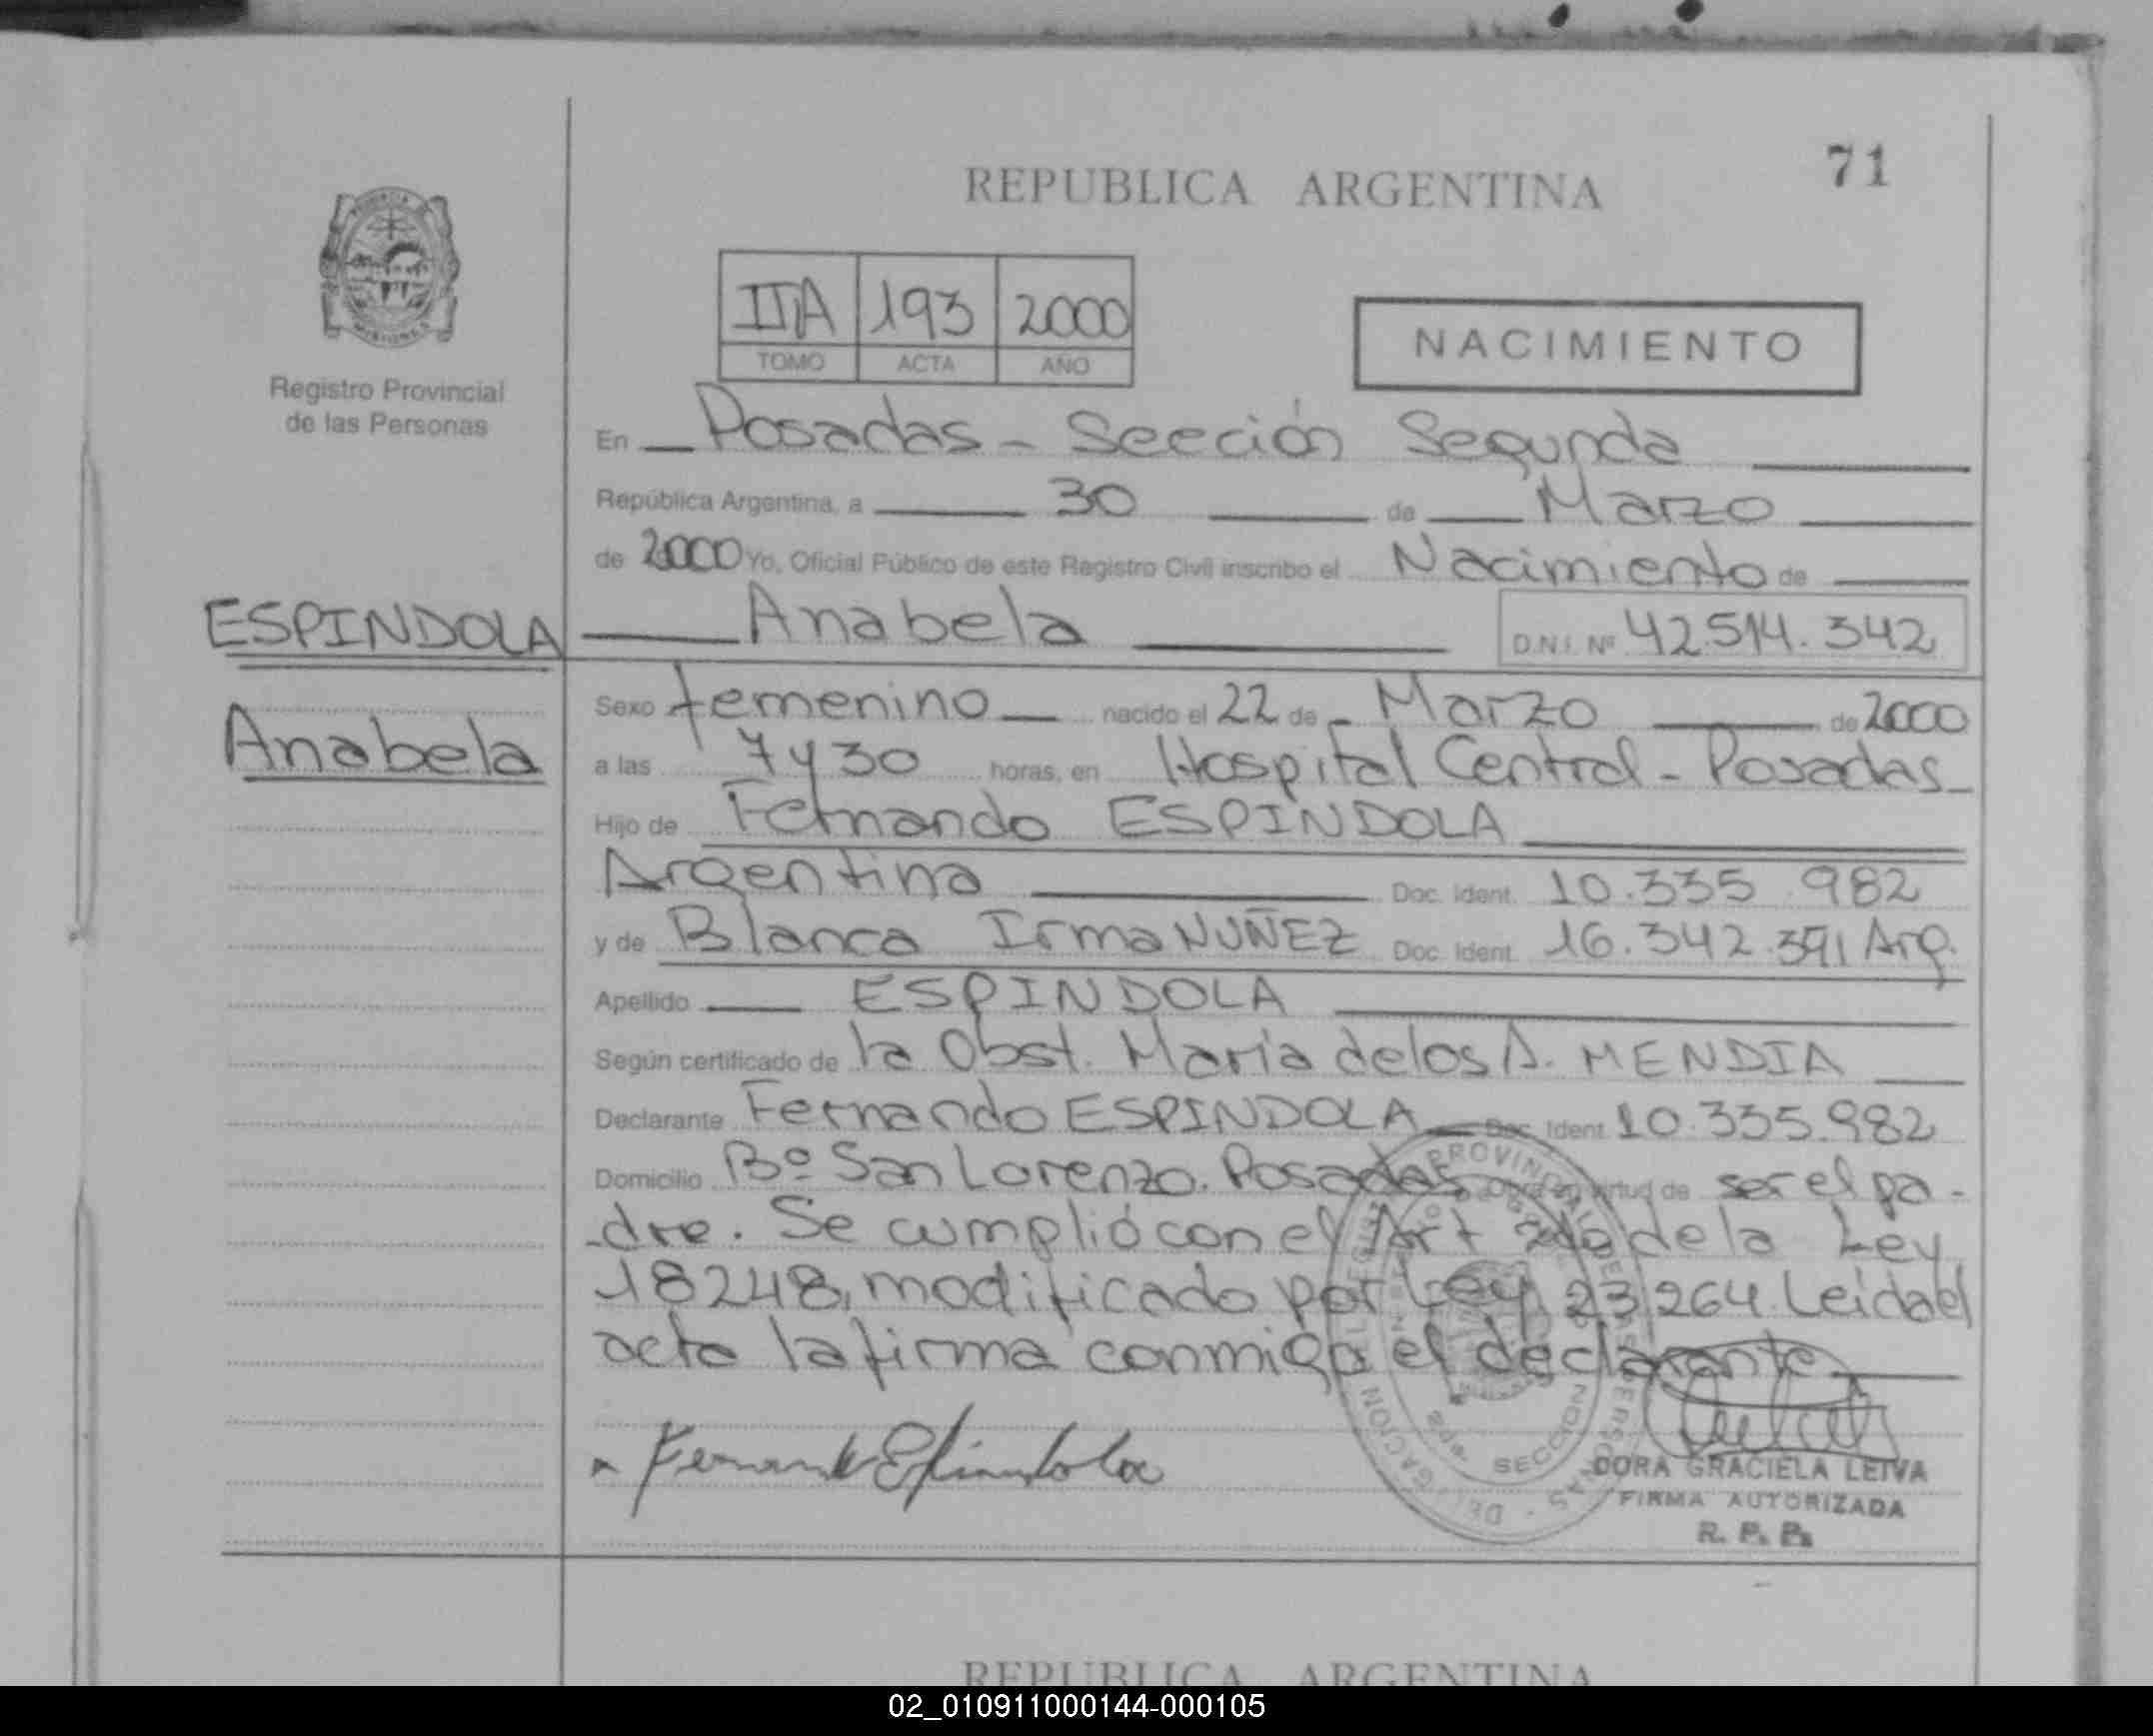 71
REPUBLICA ARGENTINA
IIA 193 2000
TOMO ACTA AÑO
NACIMIENTO
Registro Provincial
de las Personas
En Posadas - Sección Segunda
República Argentina, a 30 de Marzo
de 2000 Yo, Oficial Público de este Registro Civil inscribo el Nacimiento de
ESPINDOLA Anabela D.N.I. Nº 42.514.342
Anabela
Sexo femenino nacido el 22 de Marzo de 2000
a las 7 y 30 horas, en Hospital Central - Posadas
Hijo de Fernando ESPINDOLA
Argentina Doc. Ident. 10.335 982
y de Blanca Irma NUÑEZ Doc. Ident. 16.342.391 Arg.
Apellido ESPINDOLA
Según certificado de la Obst. María de los A. MENDIA
Declarante Fernando ESPINDOLA Doc. Ident. 10.335.982
Domicilio Bº San Lorenzo. Posadas Obra en virtud de ser el pa-
-dre. Se cumplió con el Art 2do de la Ley
18248, modificado por Ley 23264. Leida el
acta la firma conmigo el declarante
Fernando Espindola
DORA GRACIELA LEIVA
FIRMA AUTORIZADA
R. P. P.
SECCION
REPUBLICA ARGENTINA
02_010911000144-000105